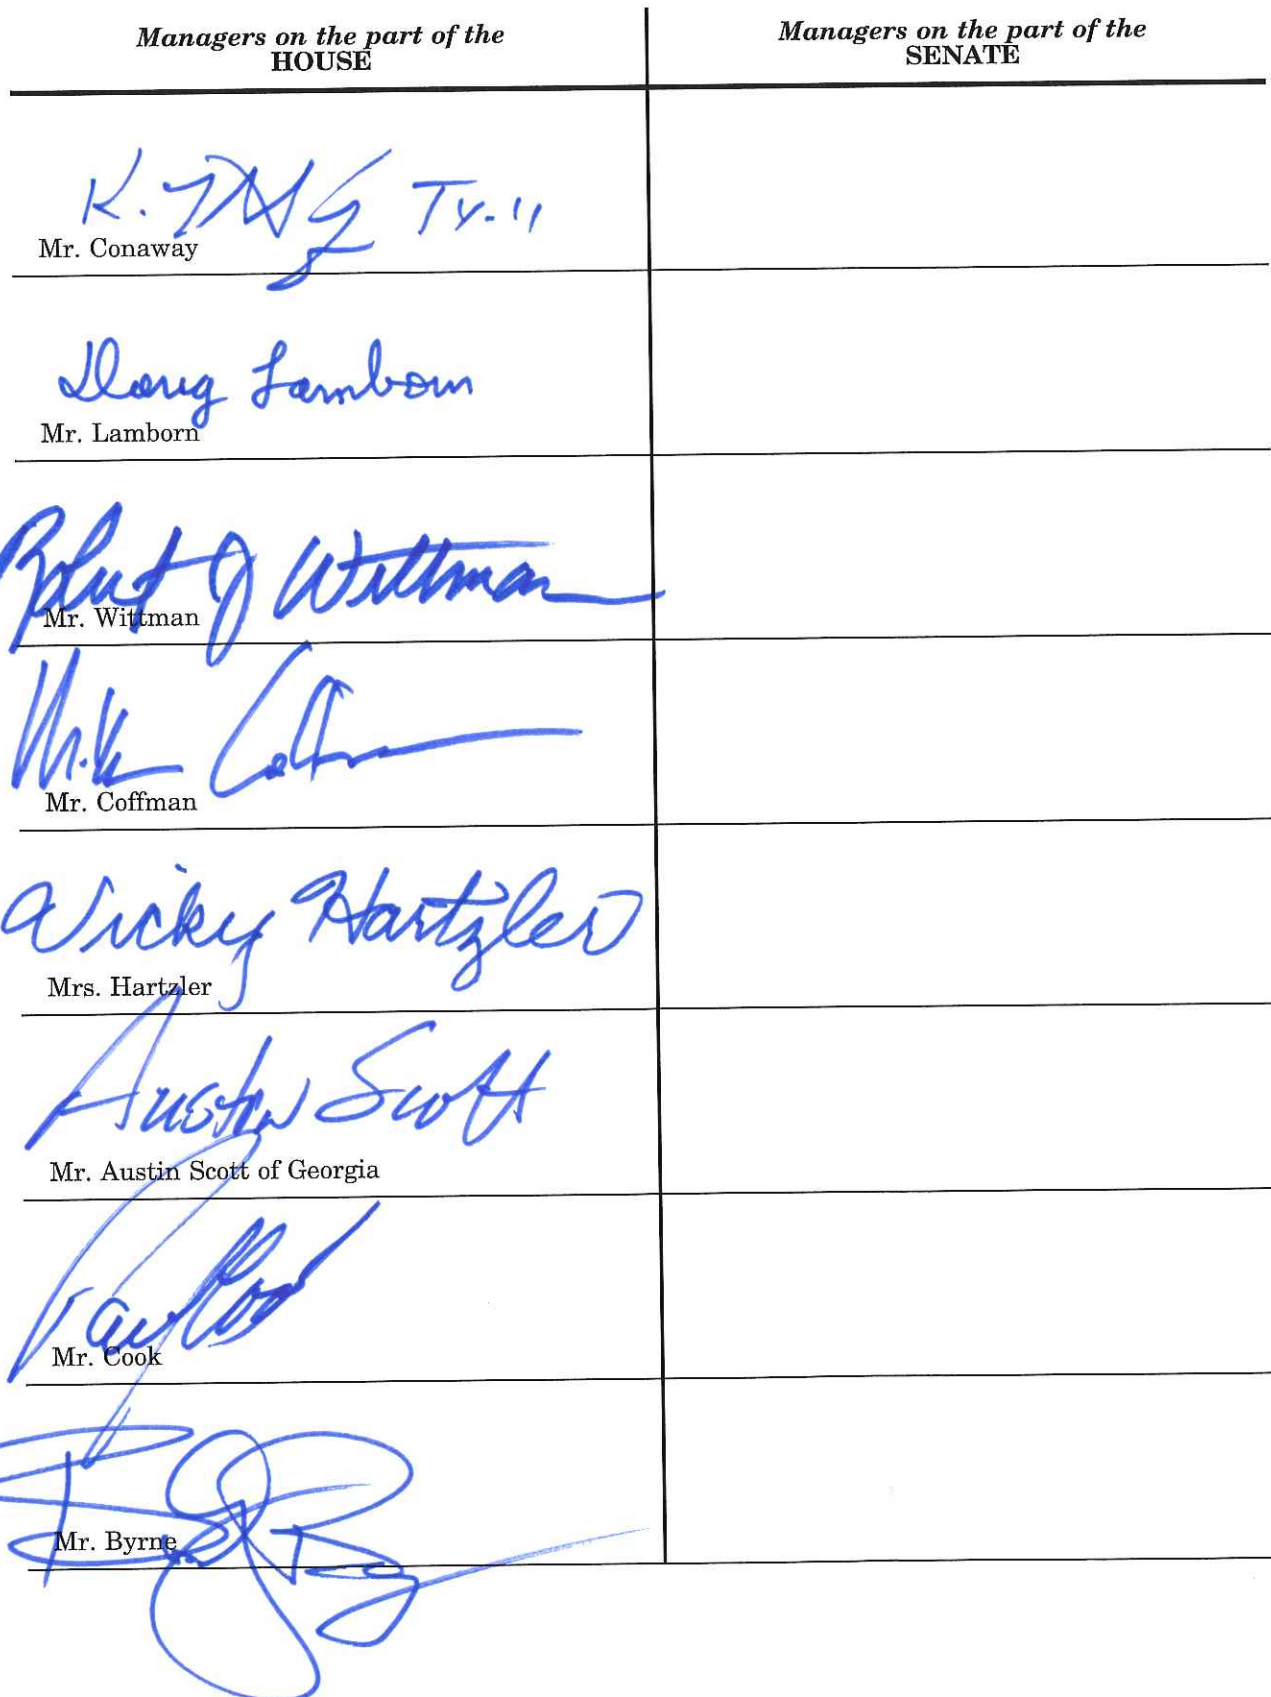 Managers on the part of the
HOUSE
Managers on the part of the
SENATE
K. TX-11
Mr. Conaway
Doug Lamborn
Mr. Lamborn
Robert J Wittman
Mr. Wittman
Mike Coffman
Mr. Coffman
Vicky Hartzler
Mrs. Hartzler
Austin Scott
Mr. Austin Scott of Georgia
Paul Cook
Mr. Cook
Mr. Byrne